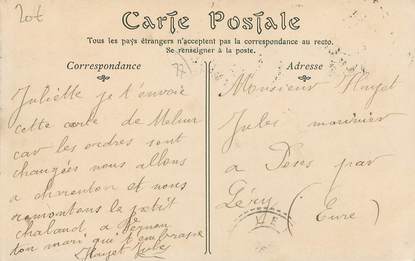 20t
Carte Postale
Tous les pays étrangers n'acceptent pas la correspondance au recto.
Se renseigner à la poste.
Correspondance
Adresse
Juliette je t'envoie
cette carte de Melun
car les ordres sont
changés nous allons
a charenton et nous
remontons la petit
chaland, a Vernon
ton mari qui t'embrasse
Huyet Jules
Monsieur Huyet
Jules marinier
a Poses par
Léry (Eure)